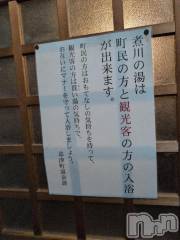 煮川の湯は
町民の方と観光客の方の入浴
が出来ます。
町民の方はおもてなしの気持ちを持って、
観光客の方は貰い湯の気持ちで、
お互いにマナーを守って入浴しましょう。
草津町温泉課